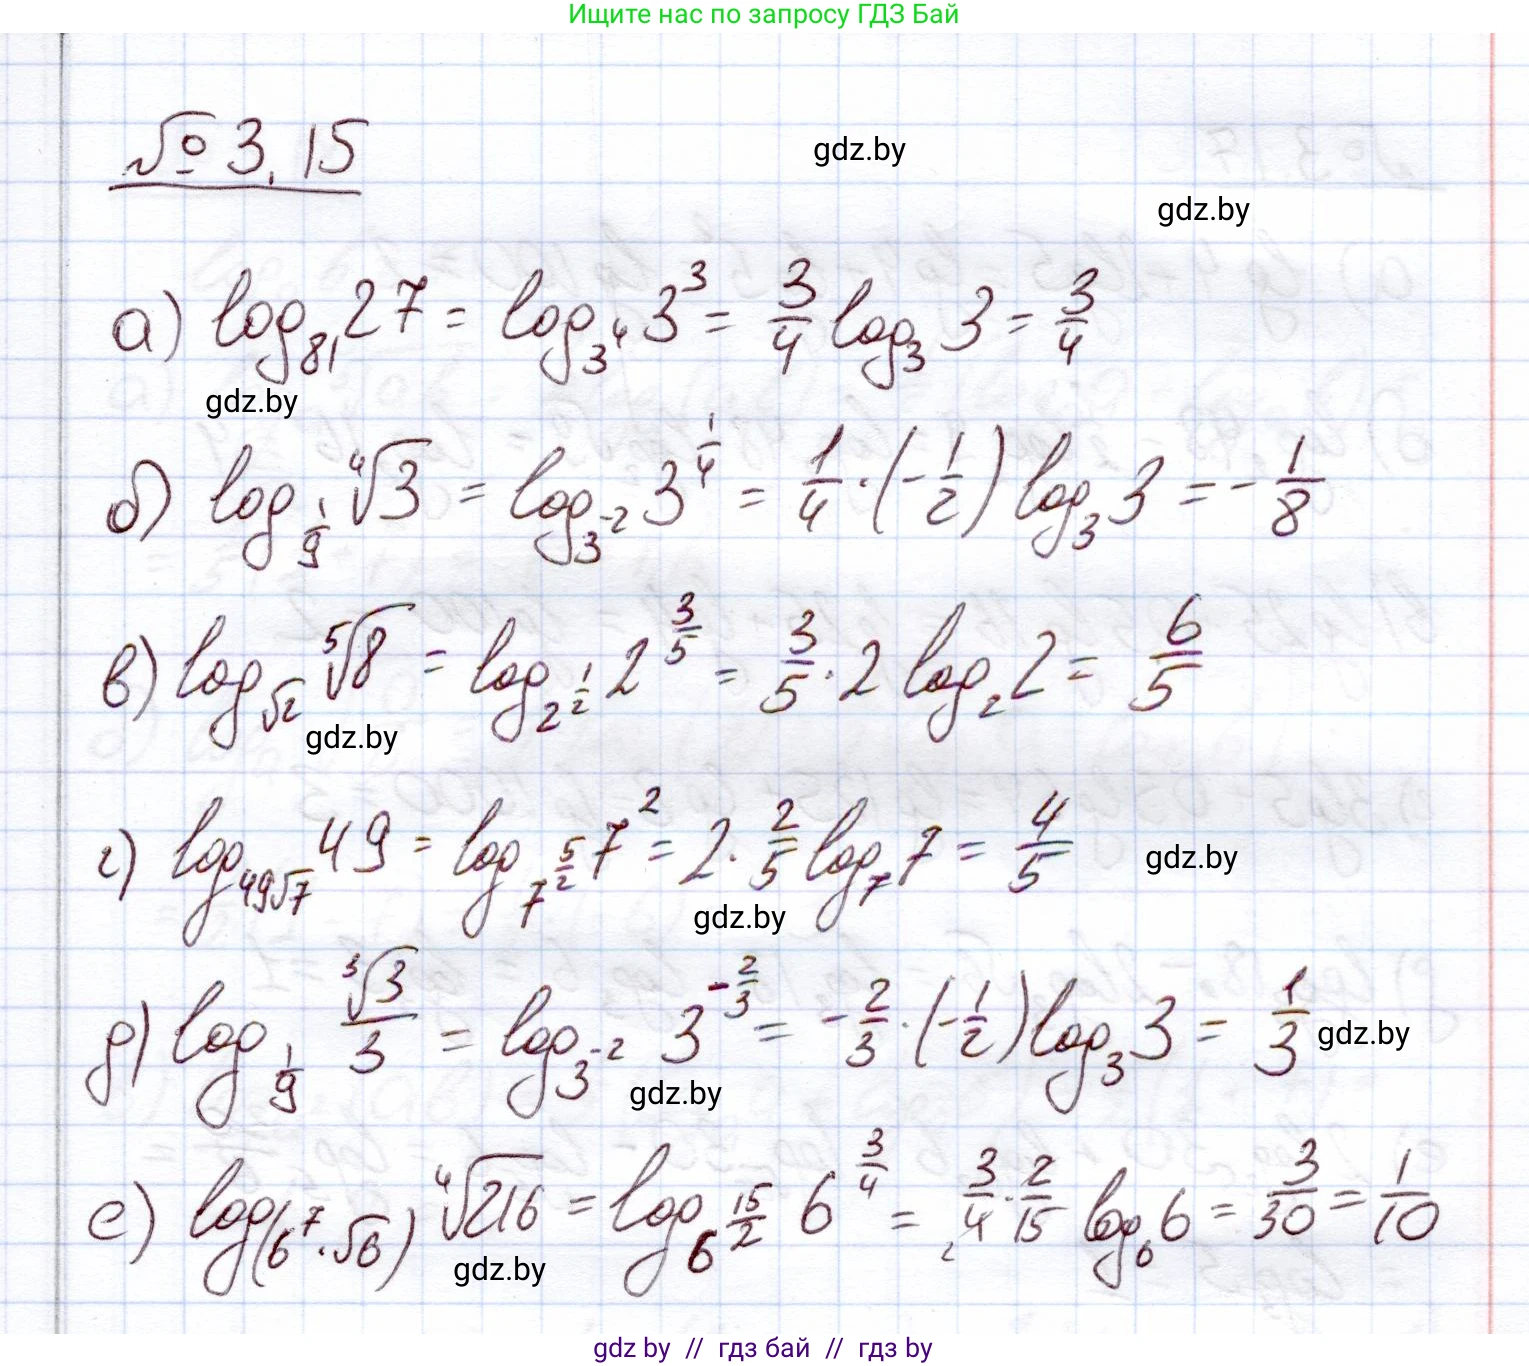 Ищите нас по запросу ГДЗ Бай
№ 3.15
gdz.by
gdz.by
а) log₈₁ 27 = log_{3^4} 3^3 = 3/4 log_3 3 = 3/4
gdz.by
б) log_{1/9} ⁴√3 = log_{3^{-2}} 3^{1/4} = 1/4 · (-1/2) log_3 3 = -1/8
в) log_{√2} ⁵√8 = log_{2^{1/2}} 2^{3/5} = 3/5 · 2 log_2 2 = 6/5
gdz.by
г) log_{49√7} 49 = log_{7^{5/2}} 7^2 = 2 · 2/5 log_7 7 = 4/5
gdz.by
gdz.by
д) log_{1/9} ³√3/3 = log_{3^{-2}} 3^{-2/3} = -2/3 · (-1/2) log_3 3 = 1/3
gdz.by
gdz.by
е) log_{(6^7·√6)} ⁴√216 = log_{6^{15/2}} 6^{3/4} = 3/4 · 2/15 log_6 6 = 3/30 = 1/10
gdz.by
gdz by // гдз бай // гдз by